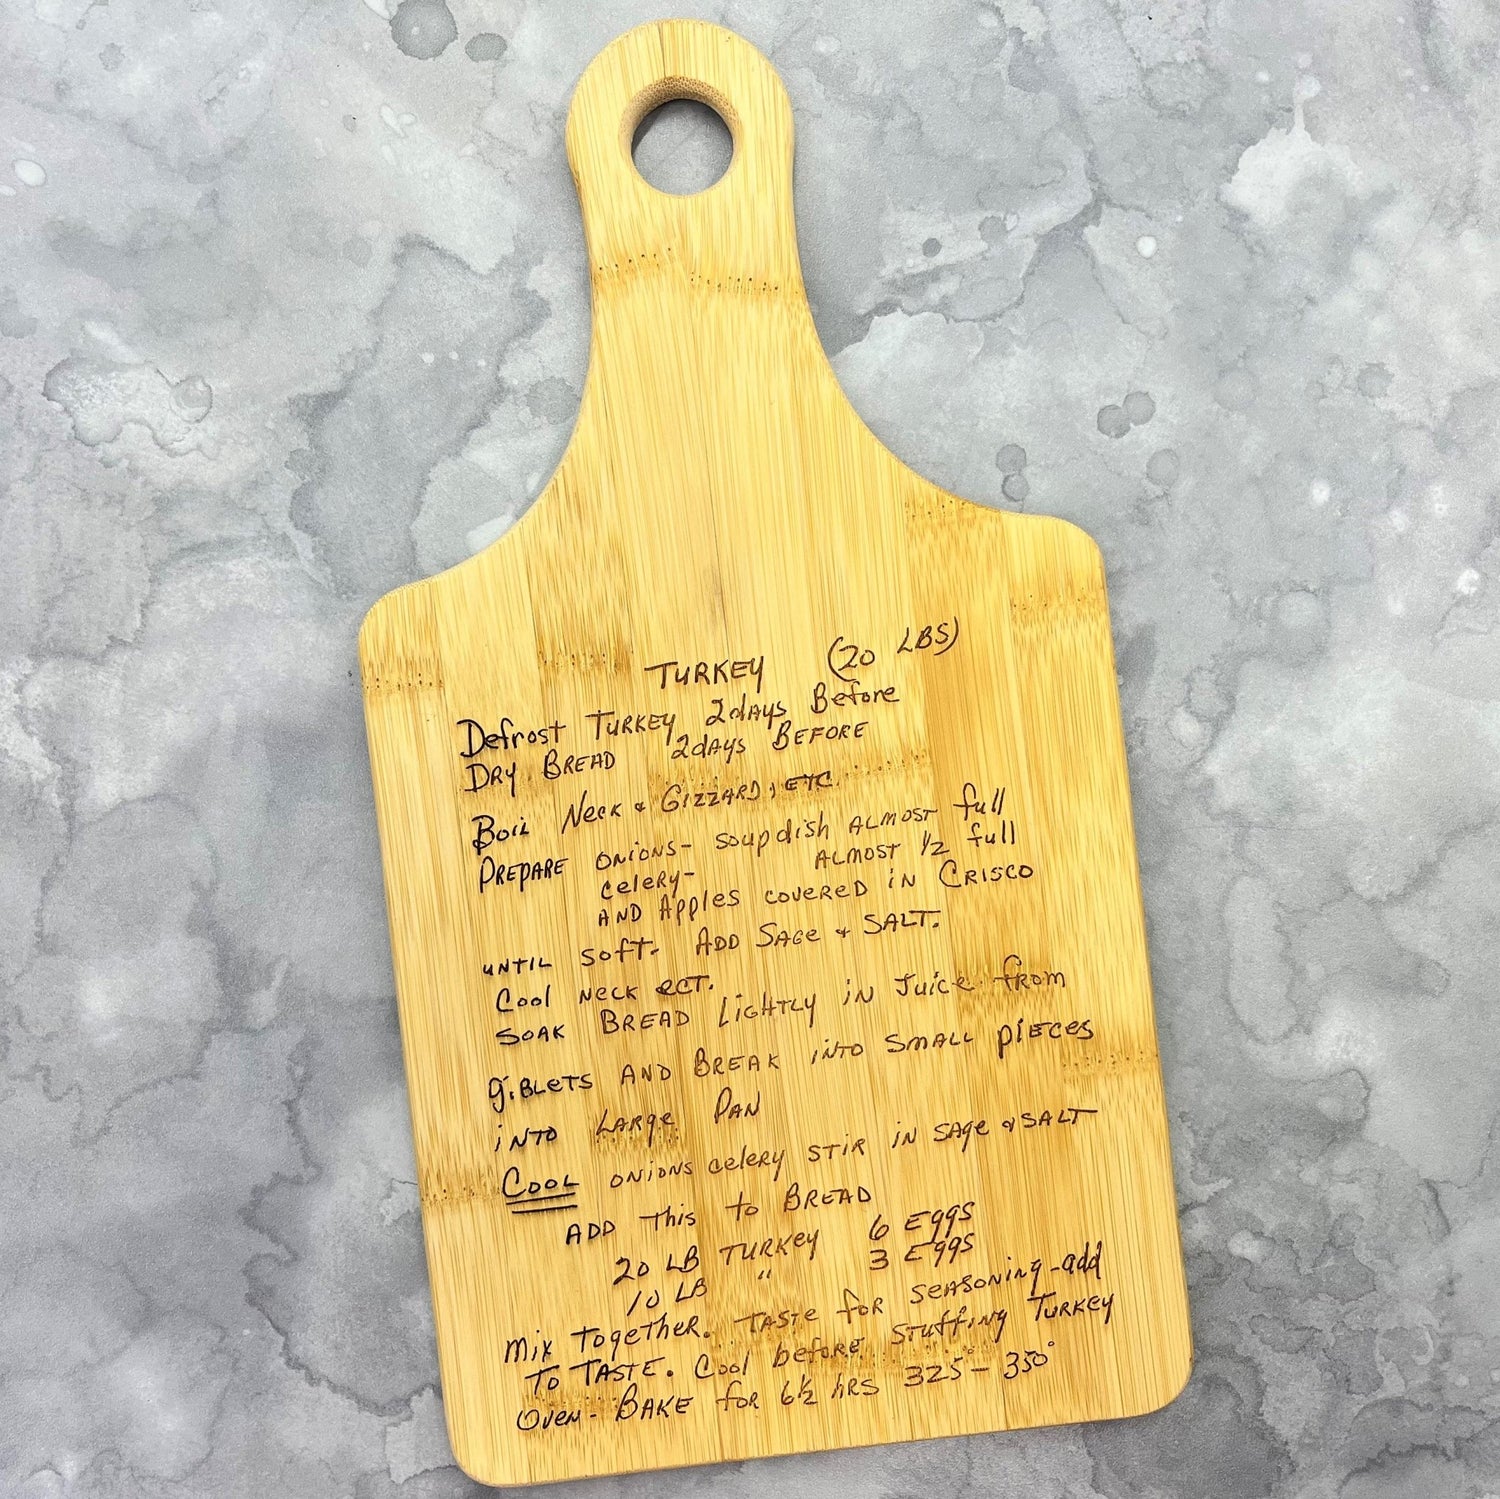 TURKEY (20 LBS)
Defrost TURKEY 2days Before
DRY BREAD 2days BEFORE
Boil Neck & GIZZARD, ETC.
PREPARE ONIONS- soup dish ALMOST full
celery- ALMOST 1/2 full
AND Apples covered iN CRISCO
UNTIL soft. ADD SAGE & SALT.
Cool NECK ECT.
SOAK BREAD LIGHTLY iN Juice from
giBLETS AND BREAK iNTO SMALL piECES
iNTO LARGE PAN
COOL ONIONS celery STIR IN SAge & SALT
ADD This to BREAD
20 LB TURKEY 6 Eggs
10 LB " 3 Eggs
Mix TogetheR. TASTE foR SEASONiNg-add
To TASTE. Cool before stuffing TURKEY
OVEN- BAKE foR 6½ hRS 325°- 350°